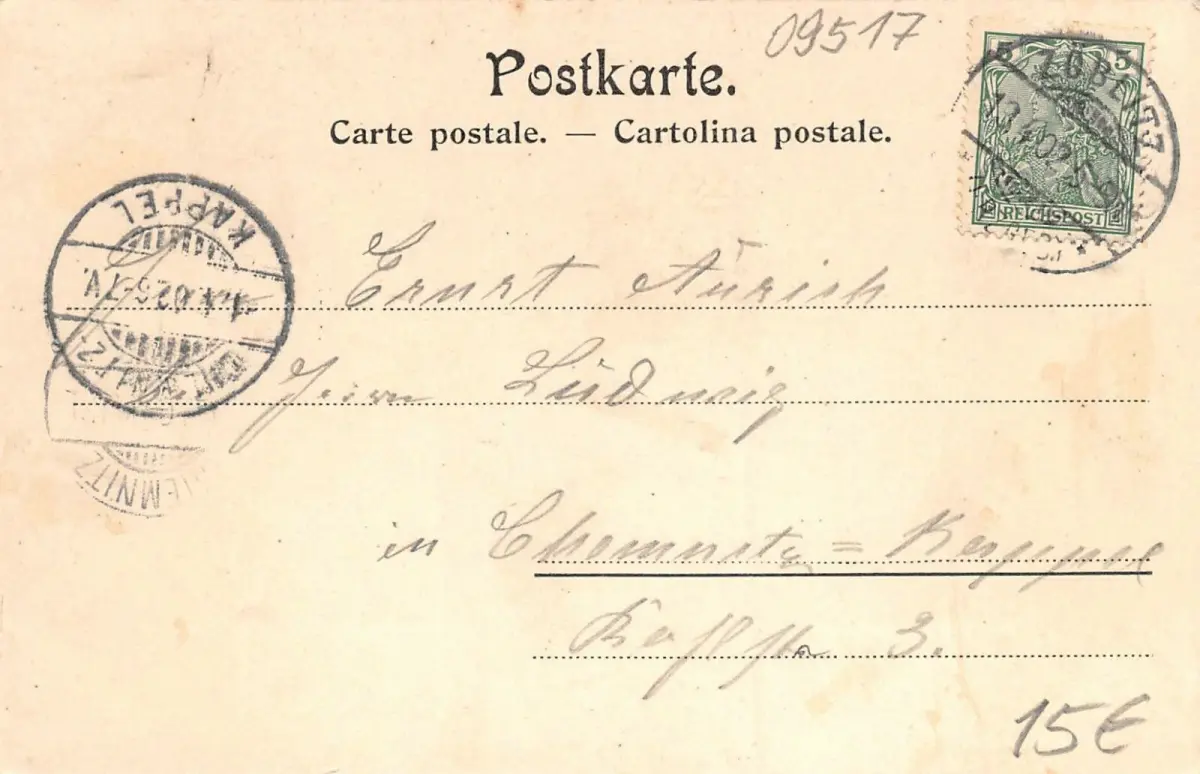 09517
Postkarte.
Carte postale. — Cartolina postale.
5 5
ZÖBLITZ
13.4.02.
REICHSPOST
KAPPEL
1.4.02.6-7V.
CHEMNITZ
Ernst Aurich
Herrn Ludwig
EMNITZ
in Chemnitz = Kappel
3.
15€